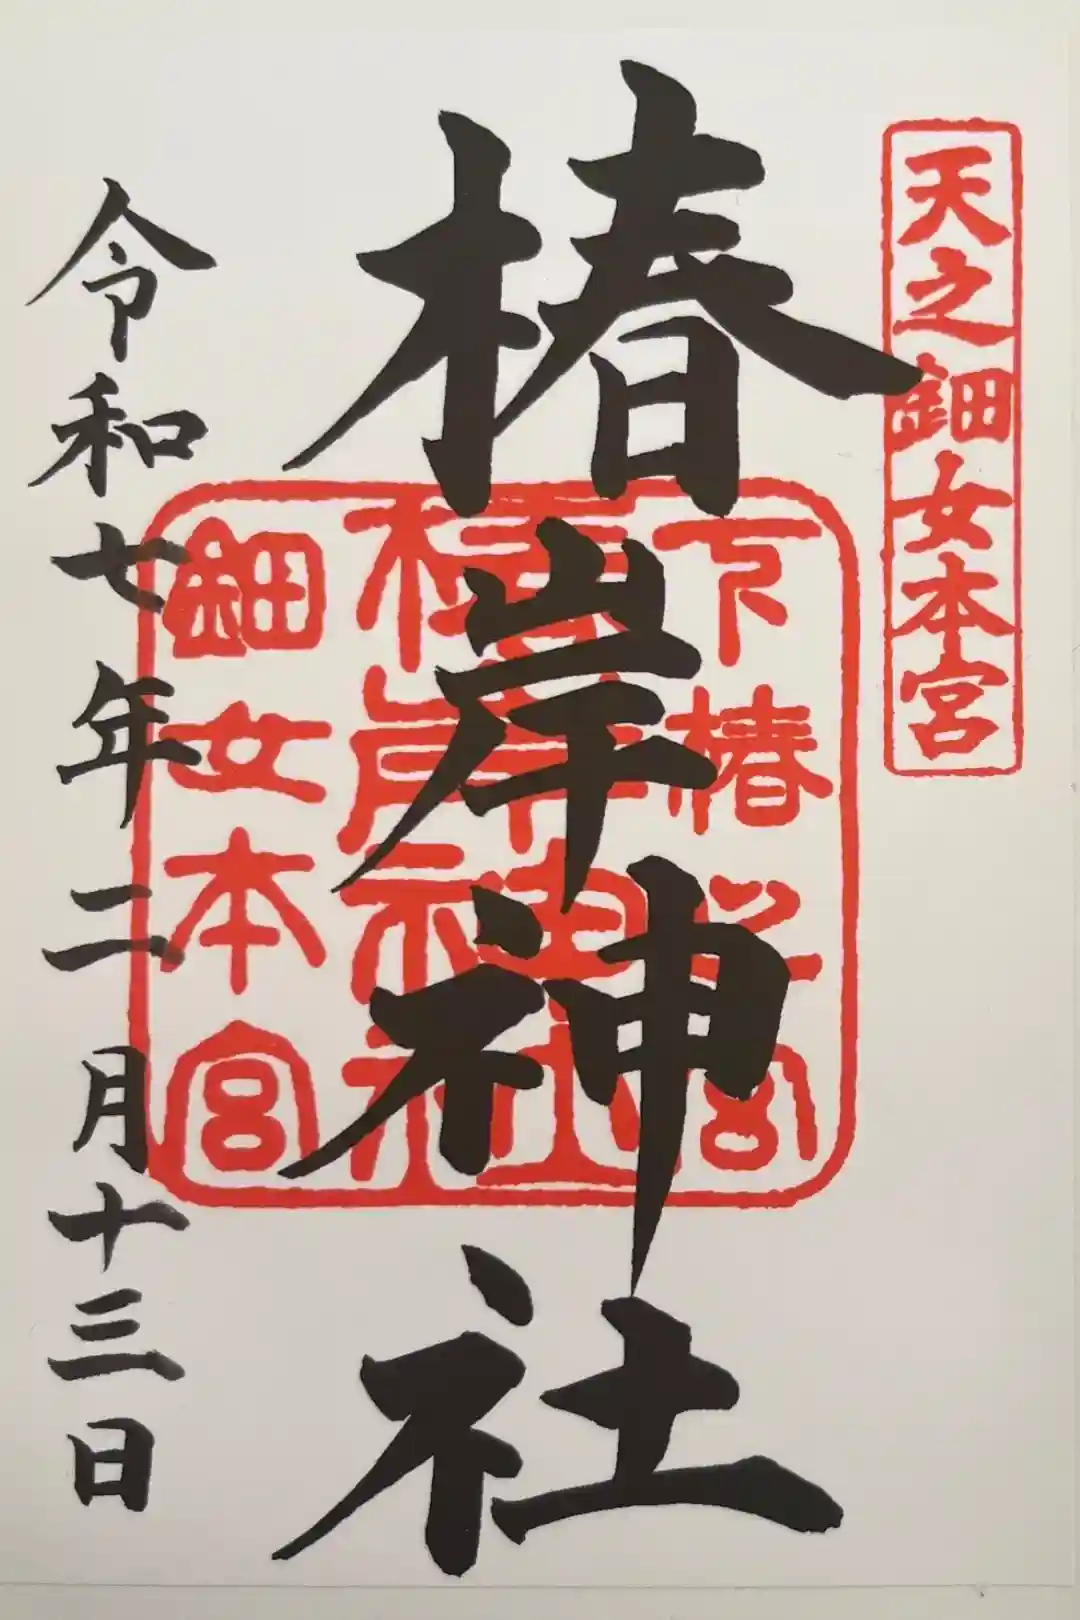 天之鈿女本宮
椿岸神社
下椿
椿岸神社
鈿女本宮
令和七年二月十三日